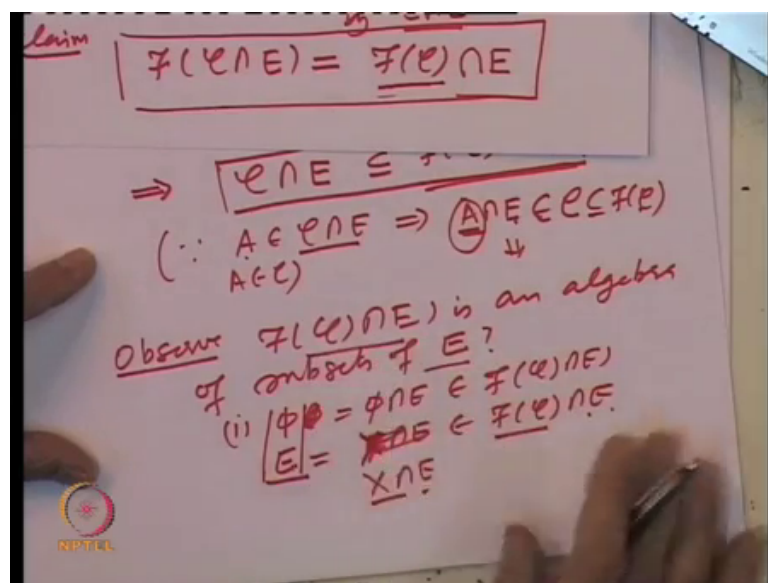 laim
𝓕(𝒞∩E) = 𝓕(𝒞)∩E
⇒ 𝒞∩E ⊆
(∵ A ∈ 𝒞∩E ⇒ A∩E ∈ 𝒞 ⊆ 𝓕(𝒞)
A∈𝒞) ⇓
Observe 𝓕(𝒞)∩E) is an algebra
of subsets of E?
(i) ϕ = ϕ∩E ∈ 𝓕(𝒞)∩E)
E = X∩E ∈ 𝓕(𝒞)∩E.
X∩E
NPTEL